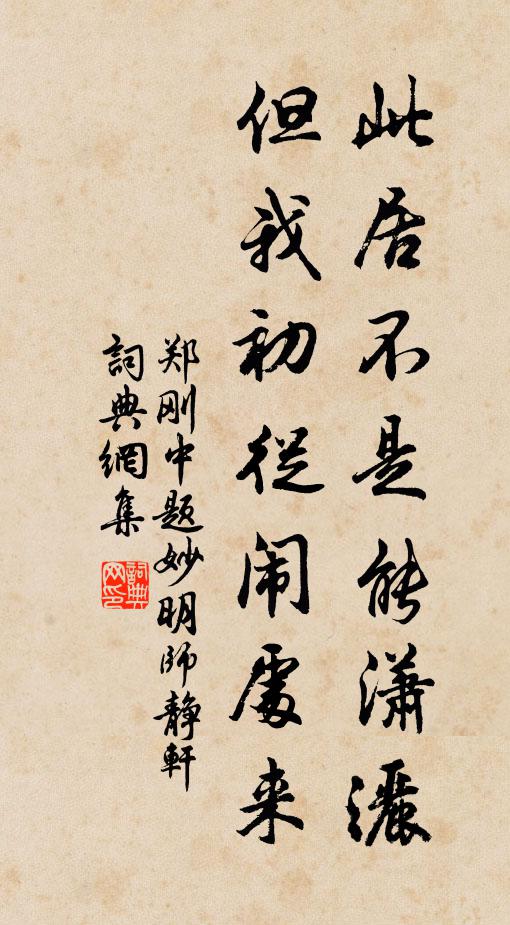 此居不是能瀟灑
但我初從闹處来
郑刚中题妙明师静軒
詞典網集
詞典网印